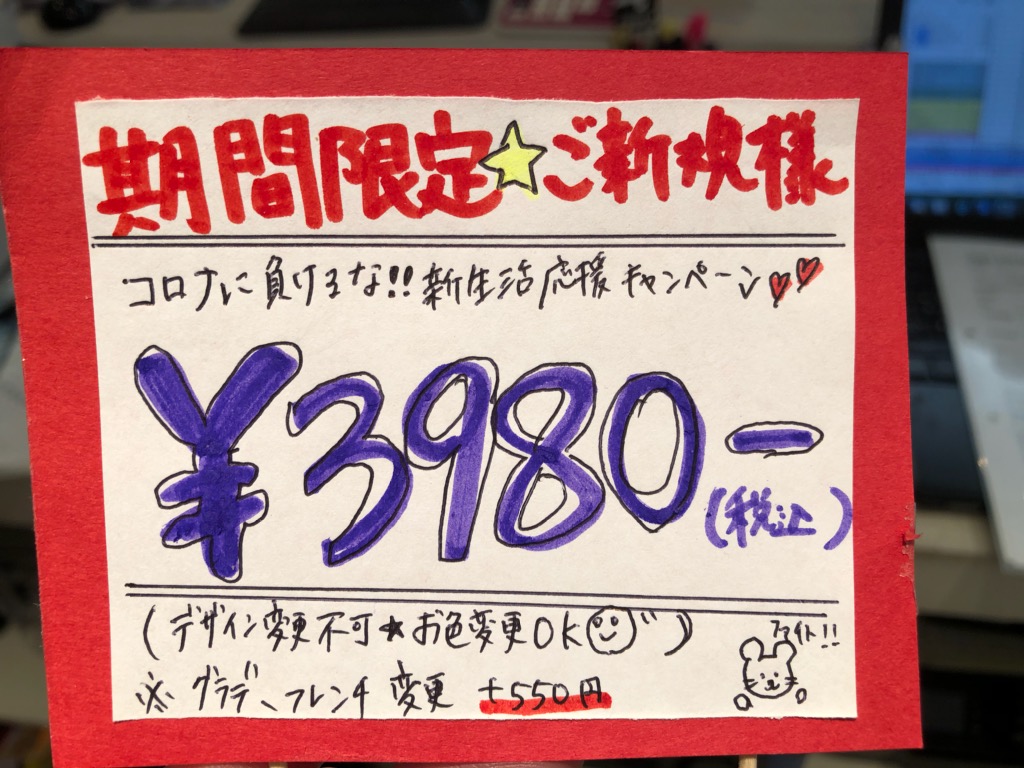 期間限定☆ご新規様
コロナに負けるな!!新生活応援キャンペーン♥♥
¥3980-
(税込)
(デザイン変更不可★お色変更OK☺)
ファイト!!
※グラデ、フレンチ変更 +550円